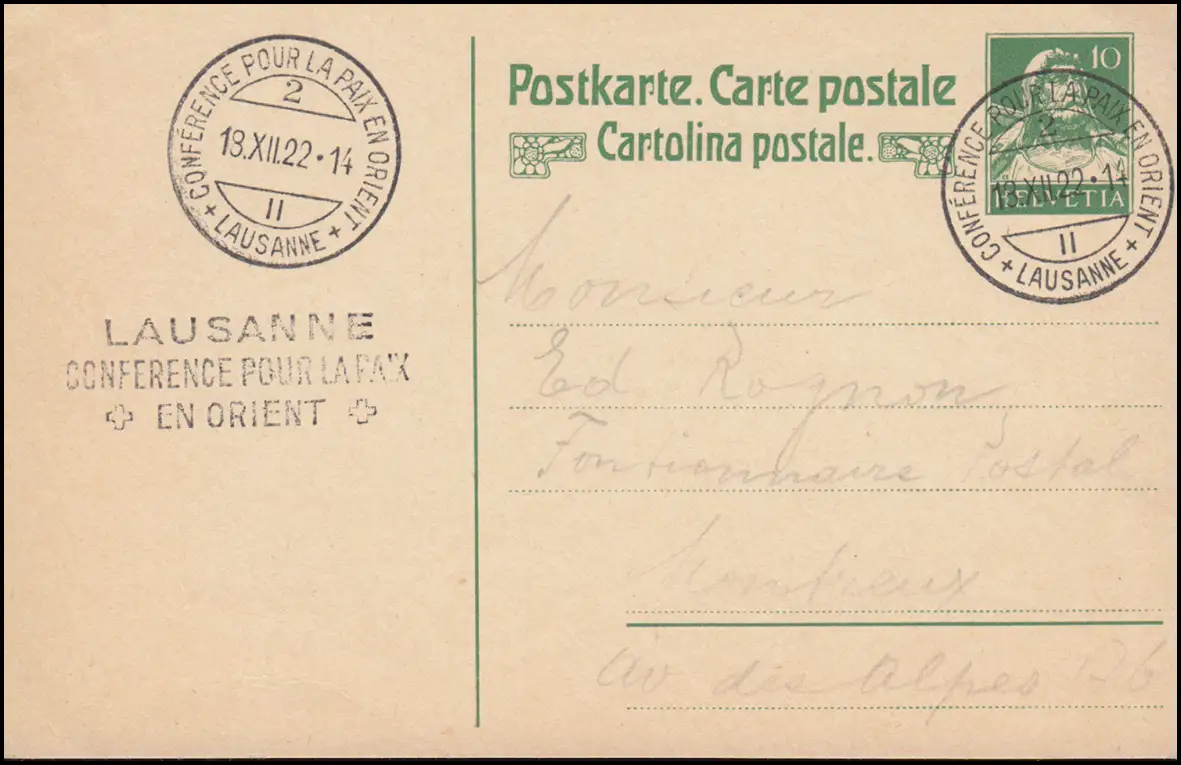 CONFÉRENCE POUR LA PAIX EN ORIENT
2
18.XII.22•14
II
+ LAUSANNE +
LAUSANNE
CONFERENCE POUR LA PAIX
EN ORIENT
Postkarte. Carte postale
Cartolina postale.
10
HELVETIA
CONFÉRENCE POUR LA PAIX EN ORIENT
2
18.XII.22•14
II
+ LAUSANNE +
Monsieur
Ed Rognon
Fontionnaire Postal
Montreux
Av des Alpes